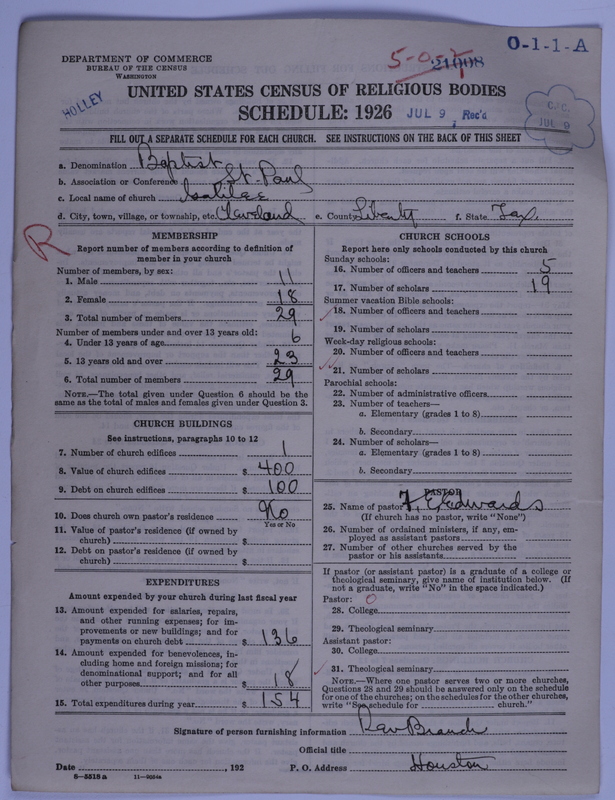 O-1-1-A
DEPARTMENT OF COMMERCE
BUREAU OF THE CENSUS
WASHINGTON
21008
HOLLEY
UNITED STATES CENSUS OF RELIGIOUS BODIES
SCHEDULE: 1926 JUL 9 Rec'd
C.I.C.
JUL 9
FILL OUT A SEPARATE SCHEDULE FOR EACH CHURCH. SEE INSTRUCTIONS ON THE BACK OF THIS SHEET
a. Denomination Baptist
b. Association or Conference St. Paul
c. Local name of church
d. City, town, village, or township, etc. Cleveland e. County Liberty f. State Tex.
R
MEMBERSHIP
Report number of members according to definition of
member in your church
Number of members, by sex:
1. Male 11
2. Female 18
3. Total number of members 29
Number of members under and over 13 years old:
4. Under 13 years of age 6
5. 13 years old and over 23
6. Total number of members 29
NOTE.—The total given under Question 6 should be the
same as the total of males and females given under Question 3.
CHURCH BUILDINGS
See instructions, paragraphs 10 to 12
7. Number of church edifices 1
8. Value of church edifices $ 400
9. Debt on church edifices $ 100
10. Does church own pastor's residence No
Yes or No
11. Value of pastor's residence (if owned by
church) $
12. Debt on pastor's residence (if owned by
church) $
EXPENDITURES
Amount expended by your church during last fiscal year
13. Amount expended for salaries, repairs,
and other running expenses; for im-
provements or new buildings; and for
payments on church debt $ 136
14. Amount expended for benevolences, in-
cluding home and foreign missions; for
denominational support; and for all
other purposes $ 18
15. Total expenditures during year $ 154
CHURCH SCHOOLS
Report here only schools conducted by this church
Sunday schools:
16. Number of officers and teachers 5
17. Number of scholars 19
Summer vacation Bible schools:
18. Number of officers and teachers
19. Number of scholars
Week-day religious schools:
20. Number of officers and teachers
21. Number of scholars
Parochial schools:
22. Number of administrative officers
23. Number of teachers—
a. Elementary (grades 1 to 8)
b. Secondary
24. Number of scholars—
a. Elementary (grades 1 to 8)
b. Secondary
PASTOR
25. Name of pastor F. E. Edwards
(If church has no pastor, write "None")
26. Number of ordained ministers, if any, em-
ployed as assistant pastors
27. Number of other churches served by the
pastor or his assistants
If pastor (or assistant pastor) is a graduate of a college or
theological seminary, give name of institution below. (If
not a graduate, write "No" in the space indicated.)
Pastor: 0
28. College
29. Theological seminary
Assistant pastor:
30. College
31. Theological seminary
NOTE.—Where one pastor serves two or more churches,
Questions 28 and 29 should be answered only on the schedule
for one of the churches; on the schedules for the other churches,
write "See schedule for church."
Signature of person furnishing information Rev Branch
Official title
Date , 192 P. O. Address Houston
8-5518 a